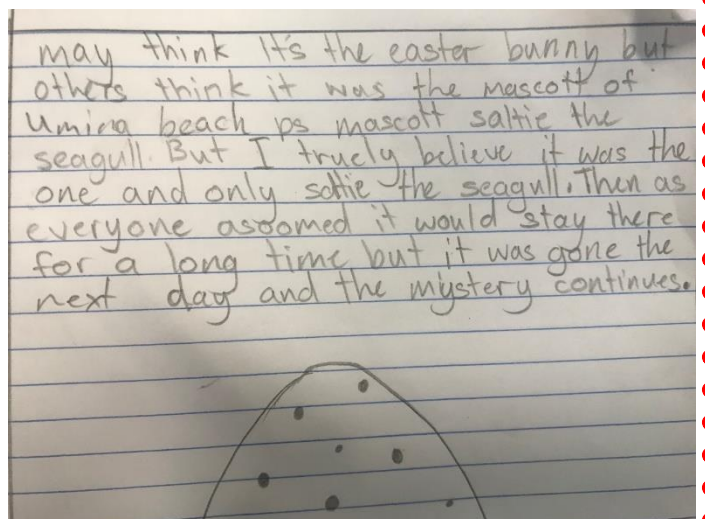 may think It's the easter bunny but
others think it was the mascott of
Umina beach ps mascott saltie the
seagull. But I truely believe it was the
one and only saltie the seagull. Then as
everyone asoomed it would stay there
for a long time but it was gone the
next day and the mystery continues.